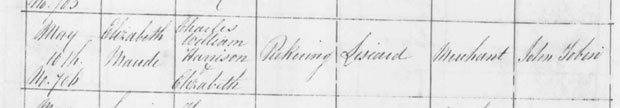 May Elizabeth Charles
10th Maude William
Harrison Pickering Liscard Merchant John Tobin
No. 706 & Elizabeth